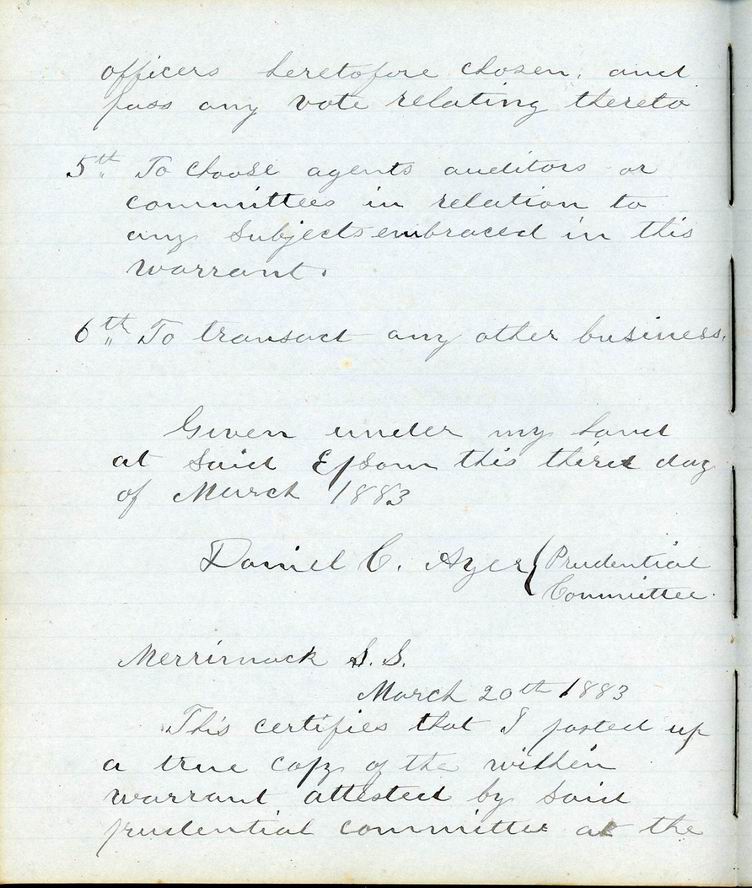 officers heretofore chosen, and
pass any vote relating thereto
5th To choose agents auditors or
committees in relation to
any subjects embraced in this
warrant.
6th To transact any other business.
Given under my hand
at said Epsom this third day
of March 1883
Daniel C. Ayer { Prudential
Committee.
Merrimack S.S.
March 20th 1883
This certifies that I posted up
a true copy of the within
warrant attested by said
prudential committee at the